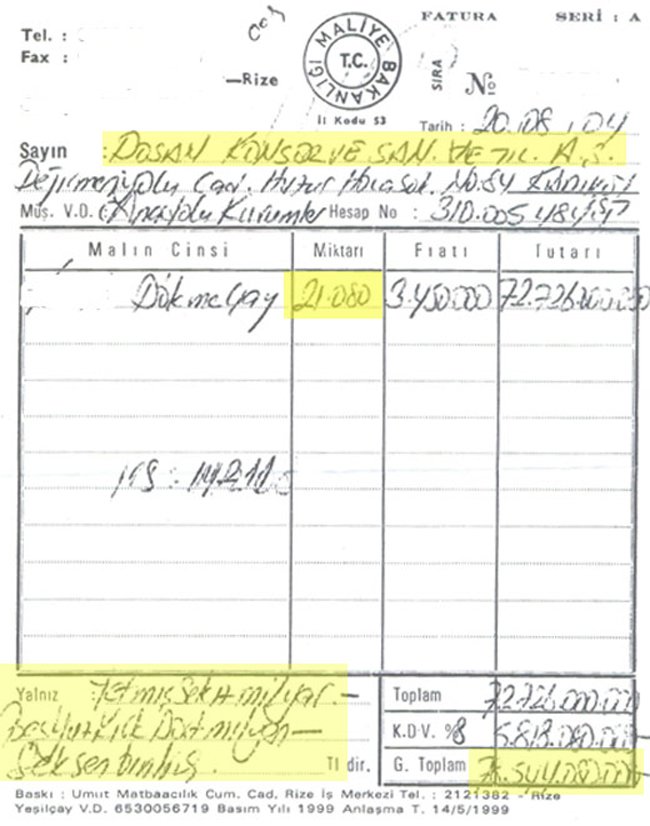 FATURA SERİ : A
Tel. :
Fax :
MALİYE BAKANLIĞI
T.C.
SIRA
№
—Rize
İl Kodu 53
Tarih : 20.08.04
Sayın : DOSAN KONSERVE SAN. VE TİC. A.Ş.
Değirmenyolu Cad. Huzur Hoca Sok. No:84
Müş. V.D. : Anadolu Kurumlar Hesap No : 310.005
Malın Cinsi Miktarı Fiatı Tutarı
Dökme Çay 21.080 3.450.000 72.726.000.000
Yalnız : Yetmiş Sekiz milyar —
Beşyüz Kırk Dört milyon —
Seksen bin Tl dir.
Toplam 72.726.000.000
K.D.V. %8 5.818.080.000
G. Toplam 78.544.080.000
Baskı : Umut Matbaacılık Cum. Cad. Rize İş Merkezi Tel. : 2121382 - Rize
Yeşilçay V.D. 6530056719 Basım Yılı 1999 Anlaşma T. 14/5/1999